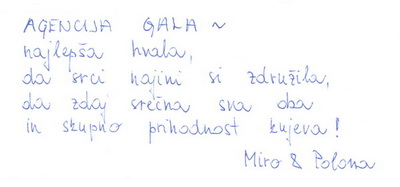 AGENCIJA GALA ~
najlepša hvala,
da srci najini si združila,
da zdaj srečna sva oba
in skupno prihodnost kujeva!
Miro & Polona